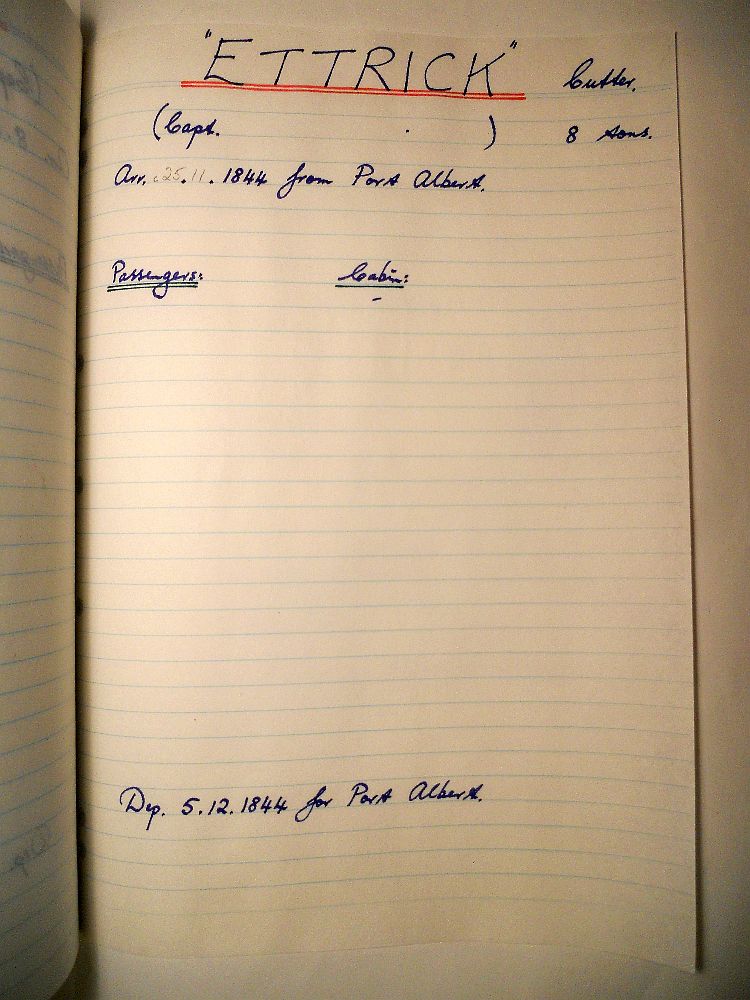 "ETTRICK" Cutter.
(Capt. . ) 8 tons.
Arr. c25.11. 1844 from Port Albert.
Passengers: Cabin:
-
Dep. 5.12.1844 for Port Albert.